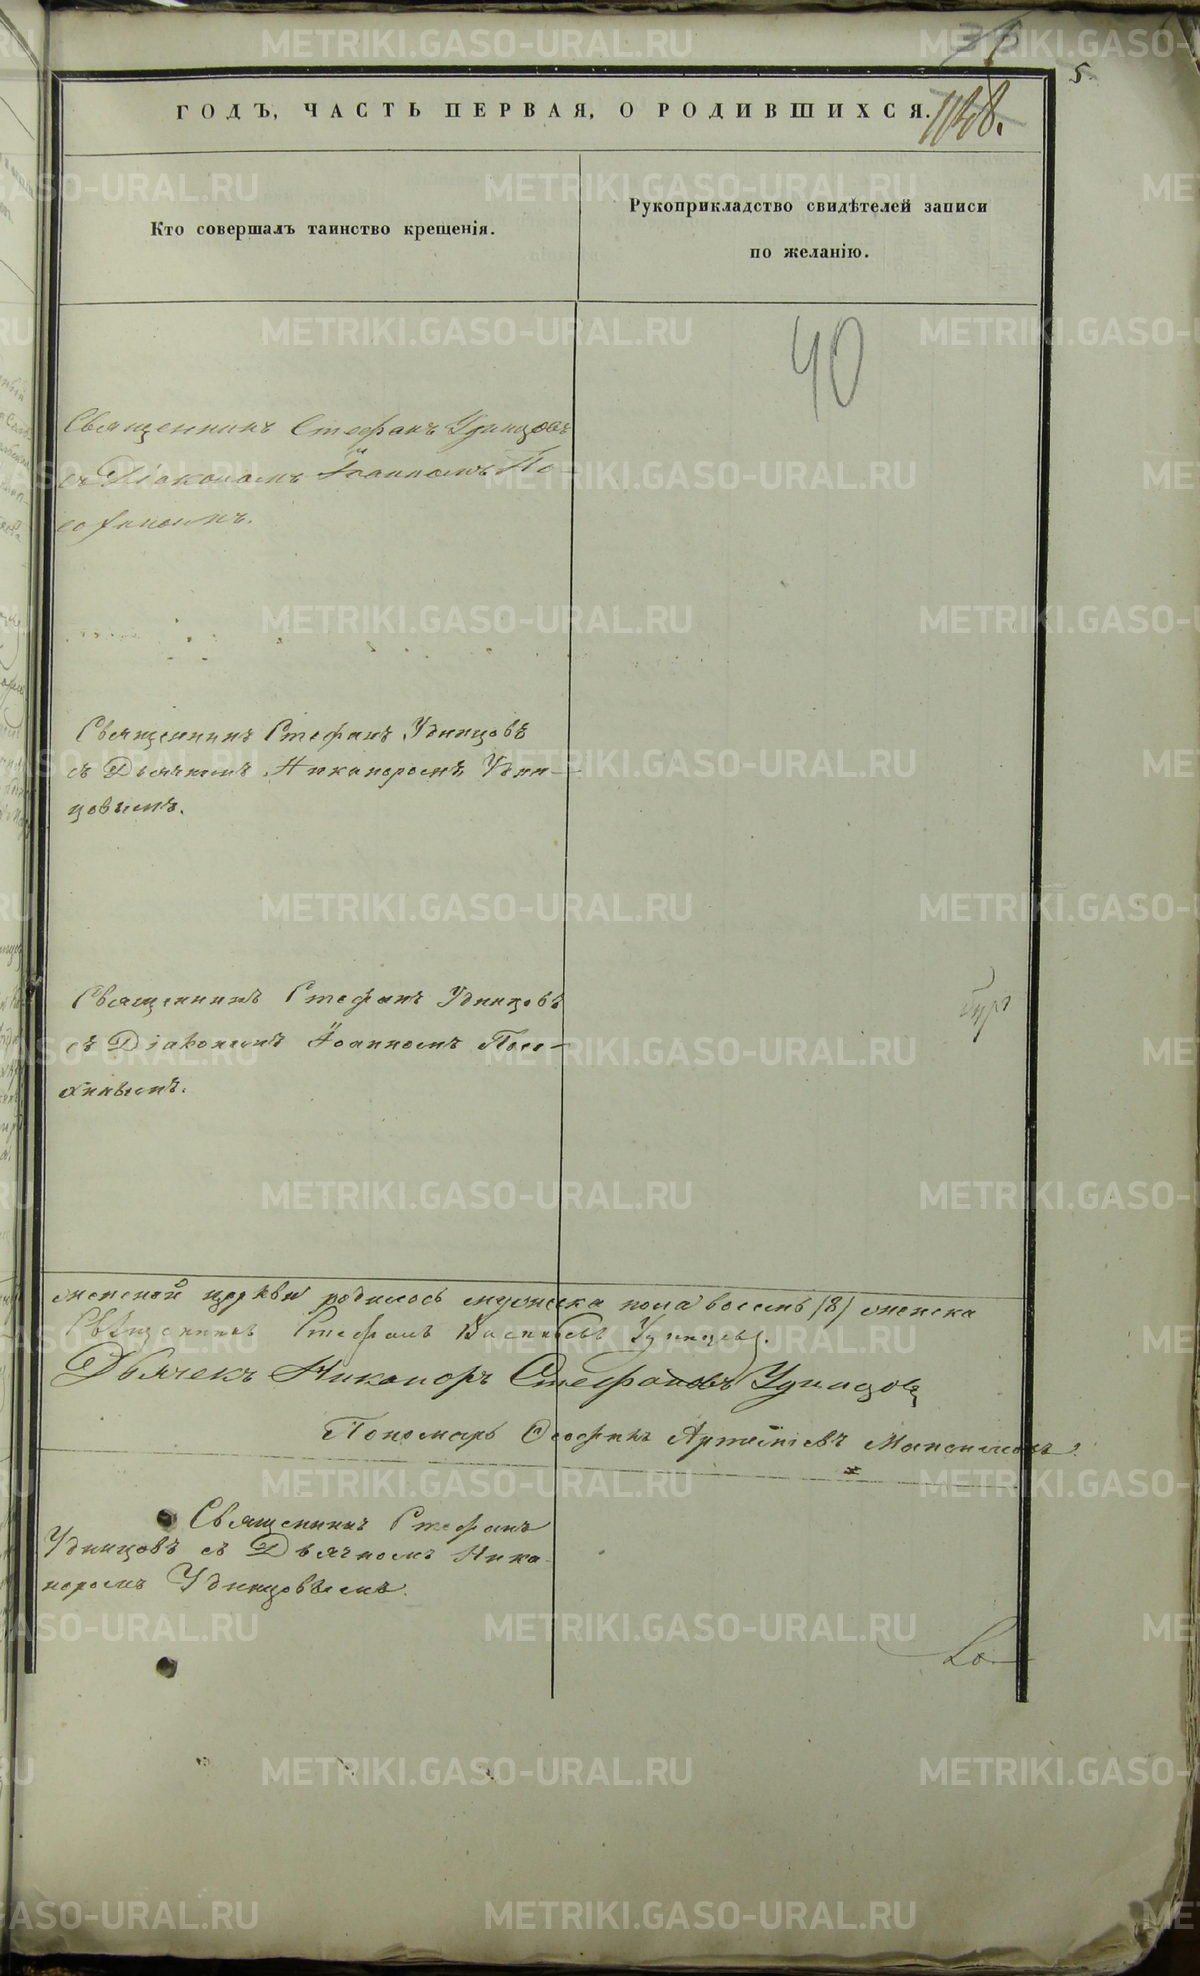 5.
ГОДЪ, ЧАСТЬ ПЕРВАЯ, О РОДИВШИХСЯ.
1148.
Кто совершалъ таинство крещенія.
Рукоприкладство свидѣтелей записи
по желанію.
40
Священникъ Стефанъ Удинцовъ
съ Діакономъ Іоанномъ По
Священникъ Стефанъ Удинцовъ
съ Дьячкомъ Никаноромъ Удин-
цовымъ.
Священникъ Стефанъ Удинцовъ
съ Діакономъ Іоанномъ
церкви родилось мужеска пола восемь /8/ женска
Священникъ Стефанъ Васильевъ Удинцовъ.
Дьячекъ Никаноръ Стефановъ Удинцовъ
Пономарь Феофилъ
Священникъ Стефанъ
Удинцовъ съ Дьячкомъ Ника-
норомъ Удинцовымъ.
METRIKI.GASO-URAL.RU